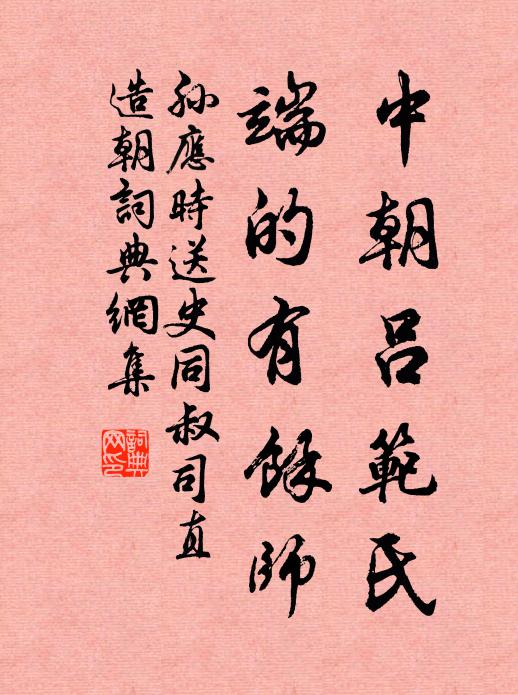 中朝吕範氏
端的有餘師
孫應時送史同叔司直
造朝詞典網集
詞典
网印